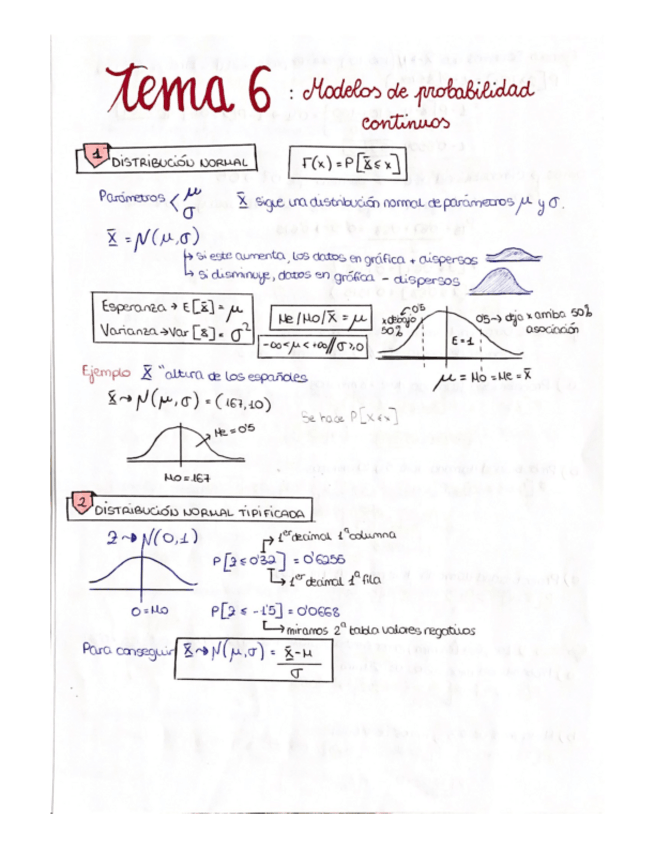 tema 6 : Modelos de probabilidad
continuos
1 DISTRIBUCIÓN NORMAL
F(x) = P[X ≤ x]
Parámetros < μ σ
X sigue una distribución normal de parámetros μ y σ.
X = N(μ,σ)
↳ si este aumenta, los datos en gráfica + dispersos
↳ si disminuye, datos en gráfica - dispersos
Esperanza → E[X] = μ
Varianza → Var[X] = σ²
Me/Mo/X̄ = μ
-∞<μ<+∞//σ≥0
x debajo 50%
0'5
E=1
0'5 → deja x arriba 50%
asociación
μ = Mo = Me = X̄
Ejemplo X "altura de los españoles
X → N(μ,σ) = (167,10)
Me = 0'5
Mo = 167
Se hace P[X≤x]
2 DISTRIBUCIÓN NORMAL TIPIFICADA
Z → N(0,1)
0 = Mo
1er decimal 1ª columna
P[Z ≤ 0'32] = 0'6255
1er decimal 1ª fila
P[Z ≤ -1'5] = 0'0668
miramos 2ª tabla valores negativos
Para conseguir X → N(μ,σ) = X-μ / σ